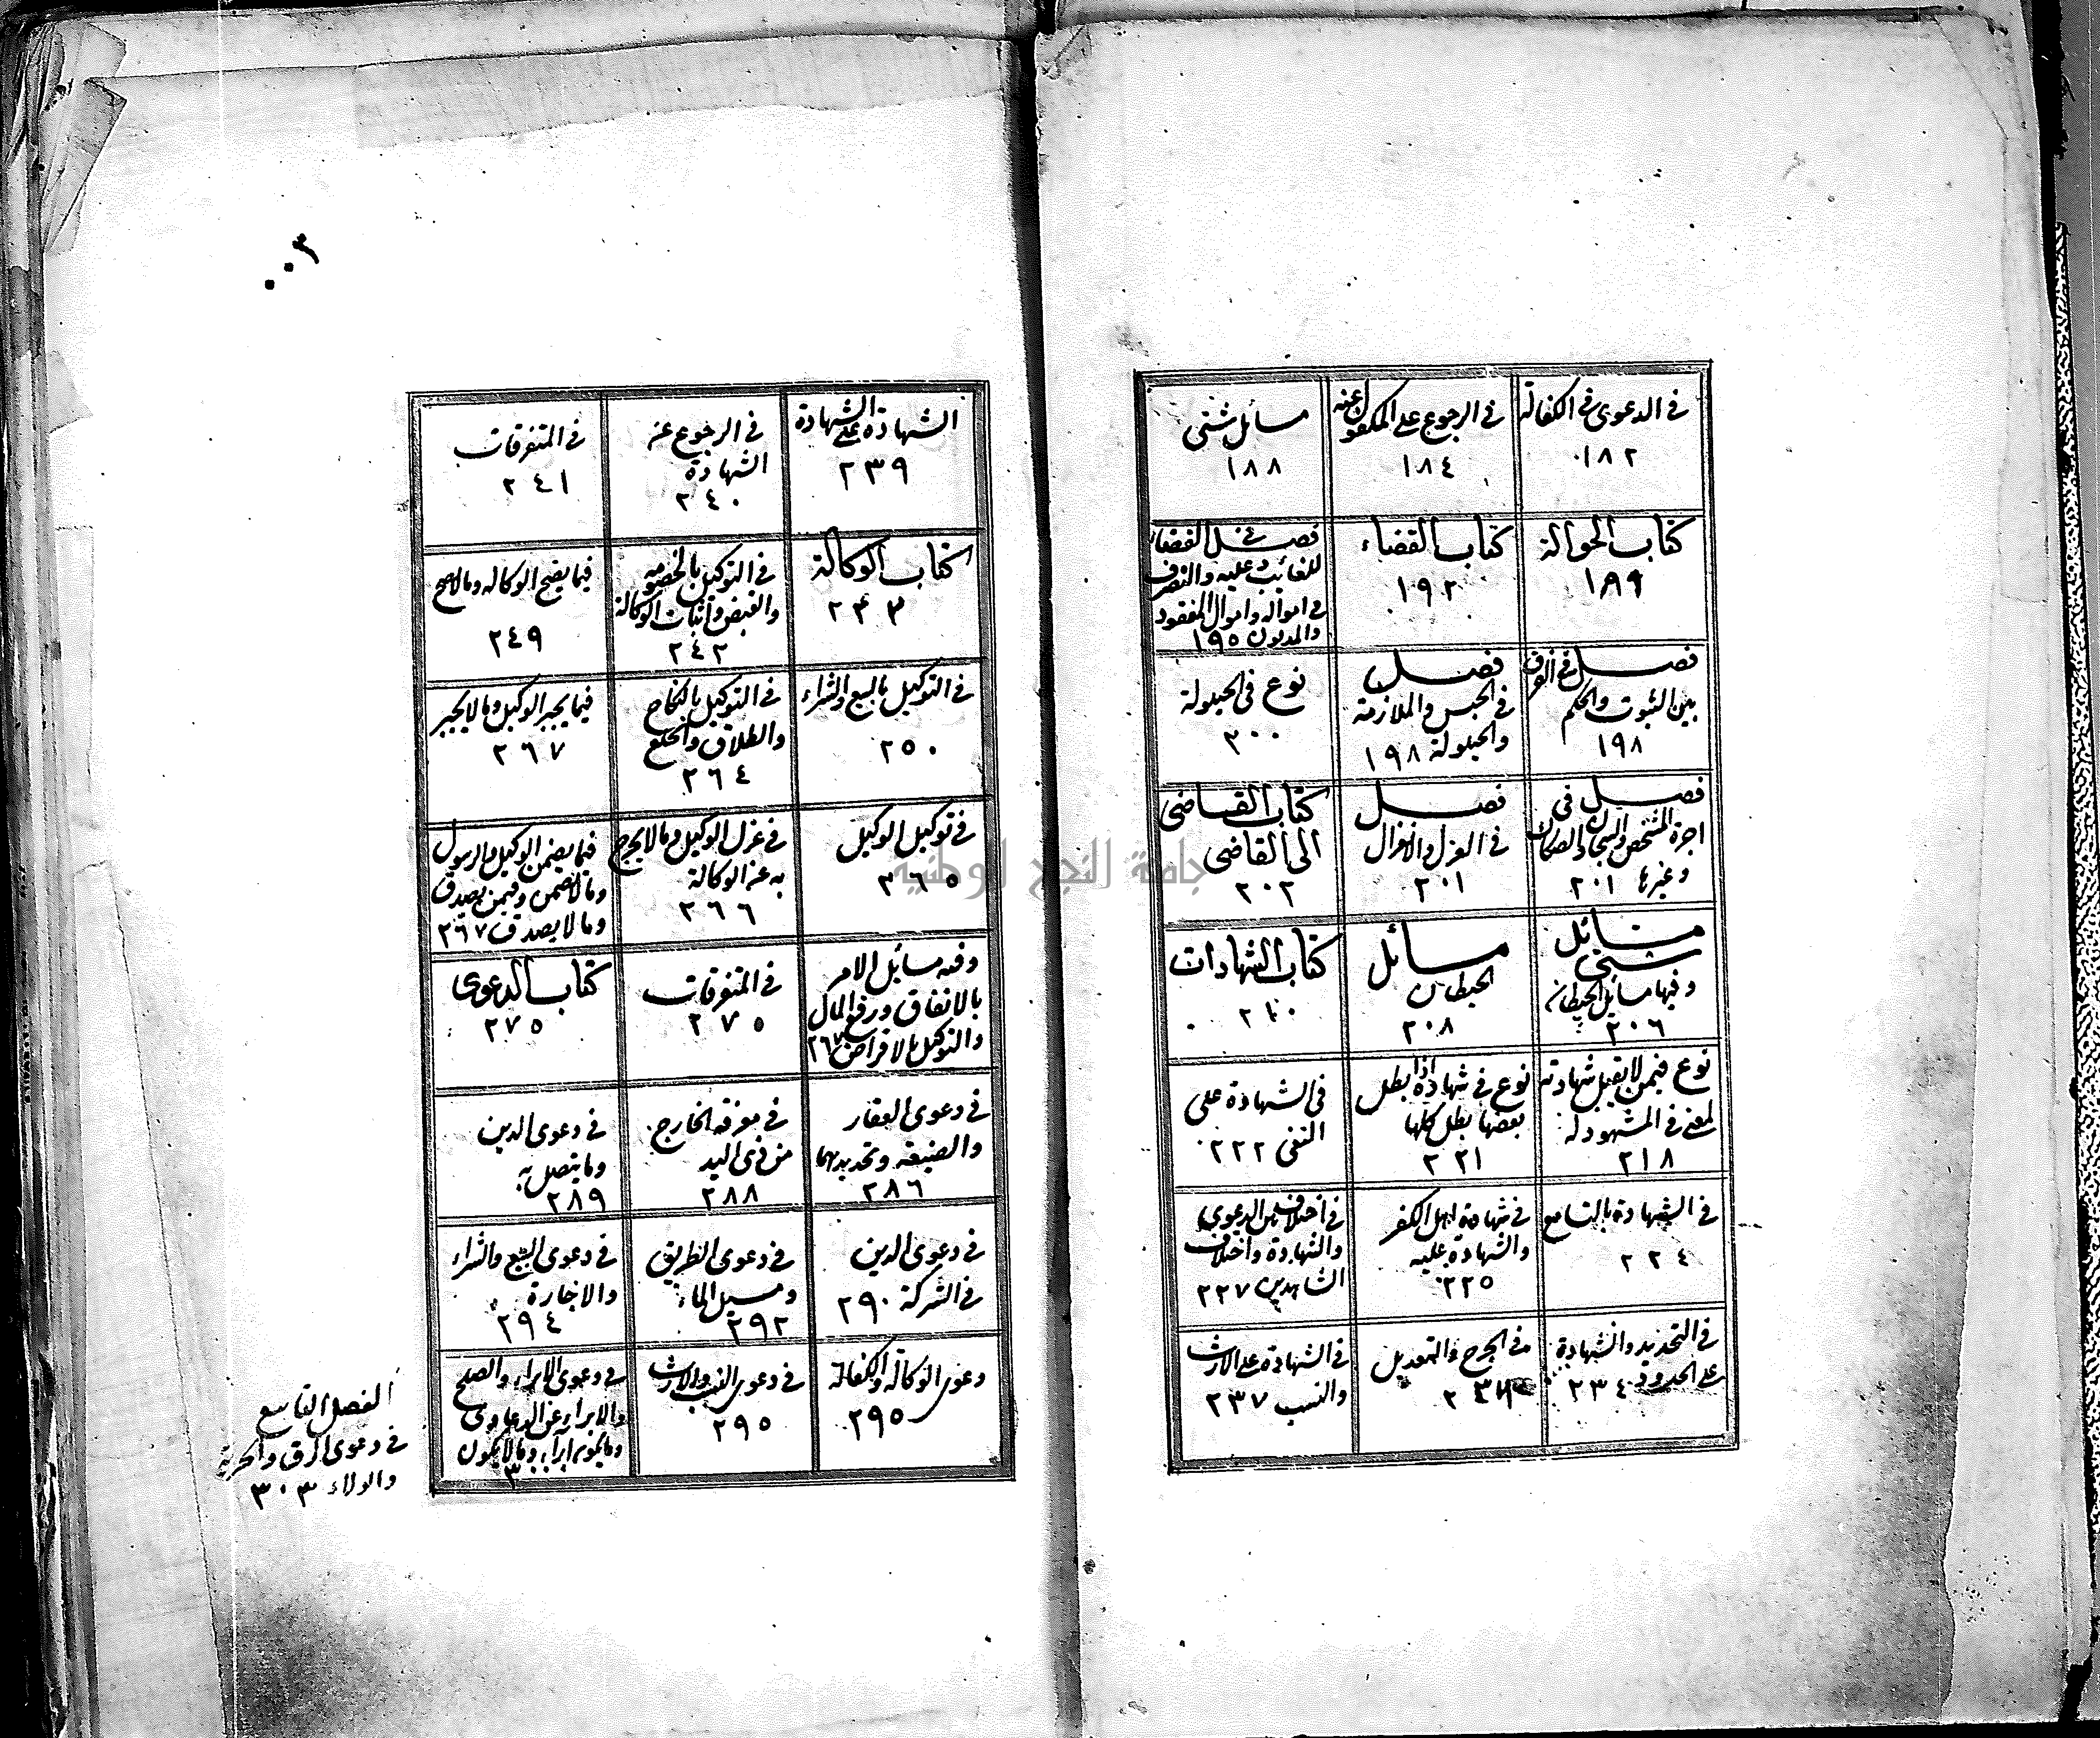 في الدعوى في الكفالة
١٨٢
في الرجوع على المكفول عنه
١٨٤
مسائل شتى
١٨٨
كتاب الحوالة
١٨٩
كتاب القضاء
١٩٢
فصل في القضاء
للغائب وعليه والتصرف
في امواله واموال المفقود
والمديون ١٩٥
فصل في الفرق
بين الثبوت والحكم
١٩٨
فصل
في الحبس والملازمة
والحيلولة ١٩٨
نوع في الحيلولة
٢٠٠
فصل في
اجرة المشخص والسجان والصكاك
وغيرها ٢٠١
فصل
في العزل والانعزال
٢٠١
كتاب القاضى
الى القاضى
٢٠٢
مسائل
شتى
وفيها مسائل الحيطان
٢٠٦
مسائل
الحيطان
٢٠٨
كتاب الشهادات
٢١٠
نوع فيمن لا يقبل شهادته
لمعنى في المشهود له
٢١٨
نوع في شهادة اذا بطل
بعضها بطل كلها
٢٢١
في الشهادة على
النفى ٢٢٢
في الشهادة بالتسامع
٢٢٤
في شهادة اهل الكفر
والشهادة عليه
٢٢٥
في اختلاف بين الدعوى
والشهادة واختلاف
الشاهدين ٢٢٧
في التحديد والشهادة
على الحدود ٢٣٤
في الجرح والتعديل
في الشهادة على الارث
والنسب ٢٣٧
٠٠٣
الشهادة على الشهادة
٢٣٩
في الرجوع عن
الشهادة
٢٤٠
في المتفرقات
٢٤١
كتاب الوكالة
في التوكيل بالخصومه
والقبض واثبات الوكالة
٢٤٢
فيما يصح الوكاله وما لا يصح
٢٤٩
في التوكيل بالبيع والشراء
٢٥٠
في التوكيل بالنكاح
والطلاق والخلع
٢٦٤
فيما يجبر الوكيل وما لا يجبر
٢٦٧
في توكيل الوكيل
٢٦٥
في عزل الوكيل وما لا يخرج
به عن الوكالة
٢٦٦
فيما يضمن الوكيل والرسول
وما لا يضمن وفيمن يصدق
وما لا يصدق ٢٦٧
وفيه مسائل الامر
بالانفاق ورفع المال
والتوكيل بالاقراض ٢٦٧
في المتفرقات
٢٧٥
كتاب الدعوى
٢٧٥
في دعوى العقار
والضيعه وتحديدهما
٢٨٦
في معرفة الخارج
من ذى اليد
٢٨٨
في دعوى الدين
وما يتصل به
٢٨٩
في دعوى الدين
في الشركة ٢٩٠
في دعوى الطريق
ومسيل الماء
٢٩٢
في دعوى البيع والشراء
والاجارة
٢٩٤
دعوى الوكالة والكفالة
٢٩٥
في دعوى النسب والارث
٢٩٥
في دعوى الابراء والصلح
والابراء عن الدعاوى
وما يكون ابراء وما لا يكون
الفصل التاسع
في دعوى الرق والحرية
والولاء ٣٠٣
جامعة النجاح الوطنية